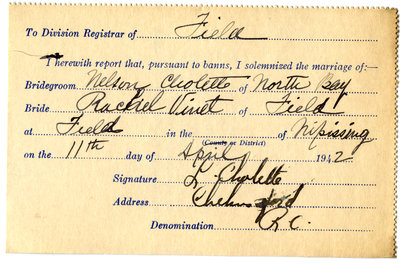 To Division Registrar of Field
I herewith report that, pursuant to banns, I solemnized the marriage of:—
Bridegroom Nelson Cholette of North Bay
Bride Rachel Vinet of Field
at Field in the (County or District) of Nipissing
on the 11th day of April 1942
Signature L. Cholette
Address Chelmsford
Denomination R.C.